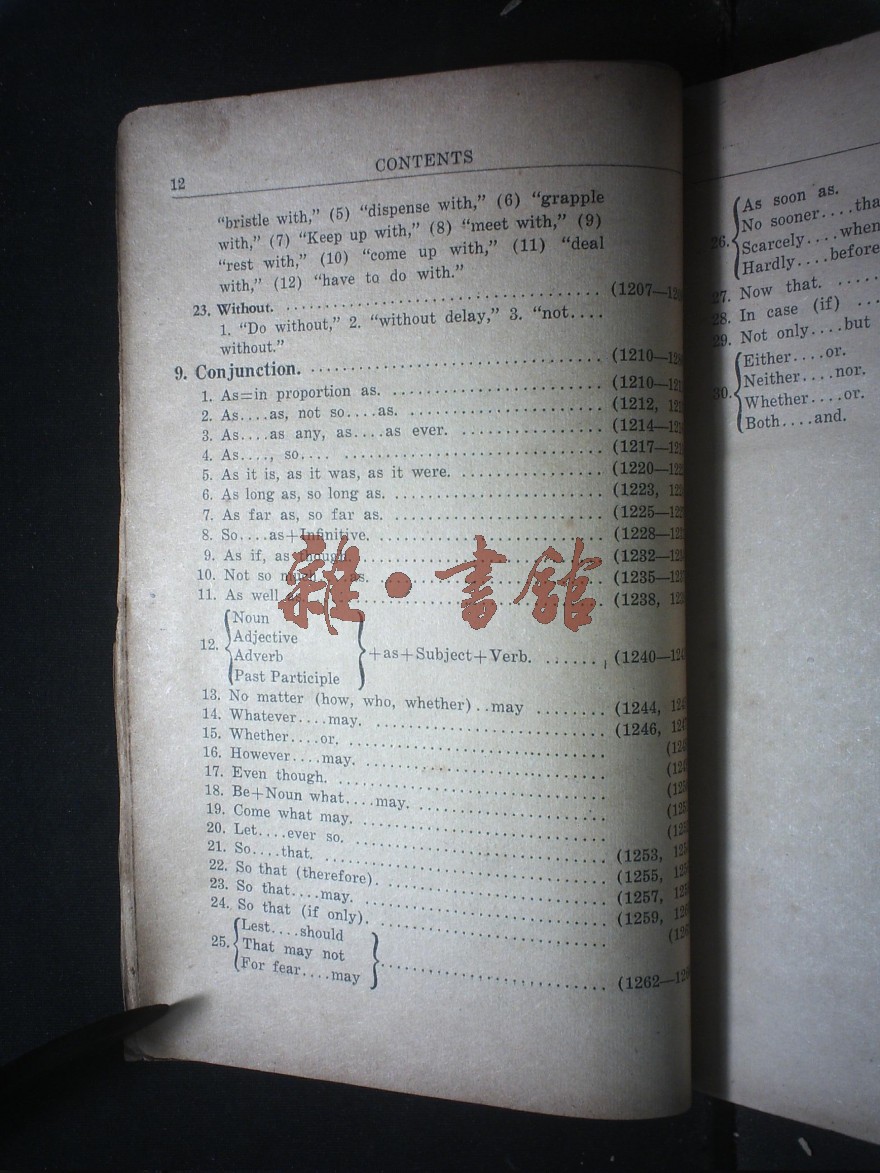 12
CONTENTS
“bristle with,” (5) “dispense with,” (6) “grapple
with,” (7) “Keep up with,” (8) “meet with,” (9)
“rest with,” (10) “come up with,” (11) “deal
with,” (12) “have to do with.”
23. Without. (1207—
1. “Do without,” 2. “without delay,” 3. “not....
without.”
9. Conjunction. (1210—
1. As=in proportion as. (1210—
2. As....as, not so....as. (1212,
3. As....as any, as....as ever. (1214—
4. As...., so.... (1217—
5. As it is, as it was, as it were. (1220—
6. As long as, so long as. (1223,
7. As far as, so far as. (1225—
8. So....as+Infinitive. (1228—
9. As if, as though. (1232—
10. Not so much as. (1235—
11. As well as. (1238,
12. {Noun
Adjective
Adverb
Past Participle} +as+Subject+Verb. (1240—
13. No matter (how, who, whether)..may (1244,
14. Whatever....may. (1246,
15. Whether....or.
16. However....may.
17. Even though.
18. Be+Noun what....may.
19. Come what may.
20. Let....ever so.
21. So....that. (1253,
22. So that (therefore). (1255,
23. So that....may. (1257,
24. So that (if only). (1259,
25. {Lest....should
That may not
For fear....may} (1262—
26. {As soon as.
No sooner....tha
Scarcely....when
Hardly....before
27. Now that.
28. In case (if)
29. Not only....but
30. {Either....or.
Neither....nor.
Whether....or.
Both....and.
雜·書館